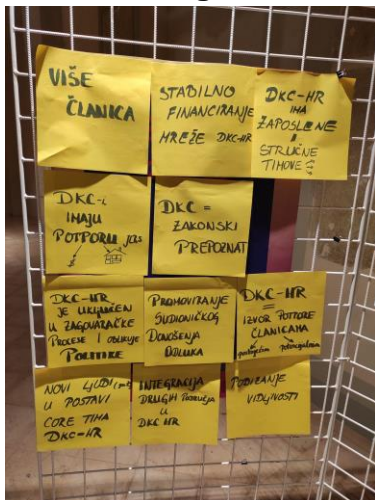 VIŠE
ČLANICA
STABILNO
FINANCIRANJE
MREŽE DKC-HR
DKC-HR
IMA
ZAPOSLENE
I
STRUČNE
TIMOVE
DKC-i
IMAJU
POTPORU JLS
DKC =
ZAKONSKI
PREPOZNAT
DKC-HR
JE UKLJUČEN
U ZAGOVARAČKE
PROCESE I OBLIKUJE
POLITIKE
PROMOVIRANJE
SUDIONIČKOG
DONOŠENJA
ODLUKA
DKC-HR
=
IZVOR POTPORE
ČLANICAMA
postojećim potencijalnim
NOVI LJUDI
U POSTAVI
CORE TIMA
DKC-HR
INTEGRACIJA
DRUGIH PODRUČJA
U
DKC HR
PODIZANJE
VIDLJIVOSTI